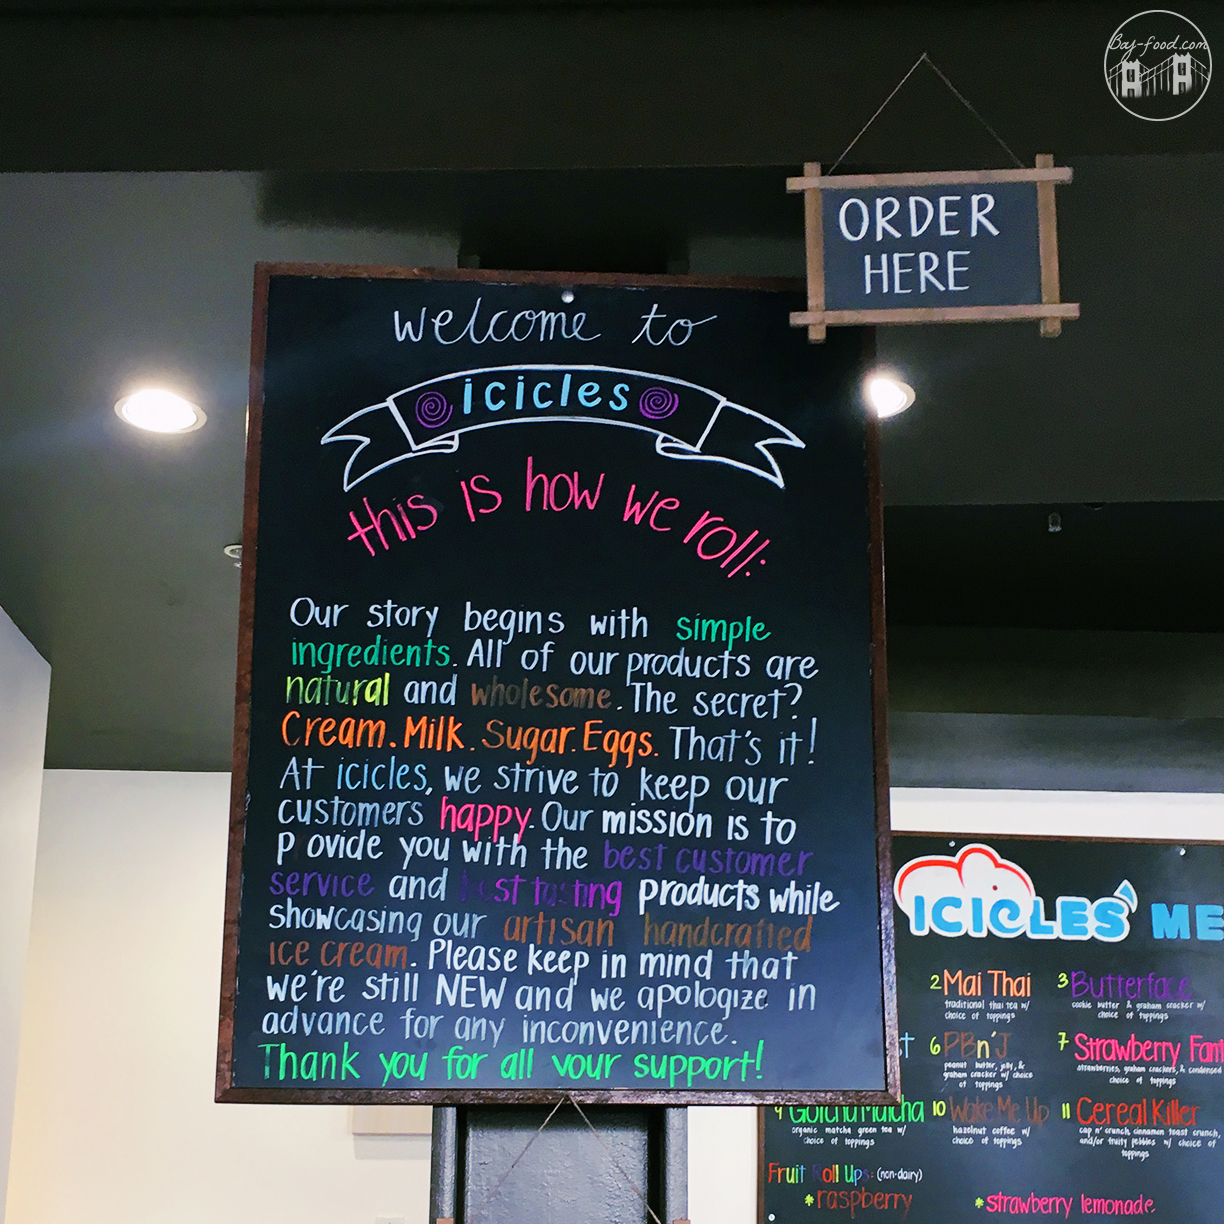 Bay-food.com
ORDER
HERE
welcome to
icicles
this is how we roll:
Our story begins with simple
ingredients. All of our products are
natural and wholesome. The secret?
Cream. Milk. Sugar. Eggs. That's it!
At icicles, we strive to keep our
customers happy. Our mission is to
p ovide you with the best customer
service and best tasting products while
showcasing our artisan handcrafted
ice cream. Please keep in mind that
we're still NEW and we apologize in
advance for any inconvenience.
Thank you for all your support!
ICICLES ME
2 Mai Thai
traditional thai tea w/
choice of toppings
3 Butterface
cookie butter & graham cracker w/
choice of toppings
6 PBn'J
peanut butter, jelly, &
graham cracker w/ choice
of toppings
7 Strawberry Fant
strawberries, graham crackers, & condensed
choice of toppings
9 Gotcha Matcha
organic matcha green tea w/
choice of toppings
10 Wake Me Up
hazelnut coffee w/
choice of toppings
11 Cereal Killer
cap n' crunch, cinnamon toast crunch,
and/or fruity pebbles w/ choice of
toppings
Fruit Roll Ups: (non-dairy)
*raspberry
*strawberry lemonade